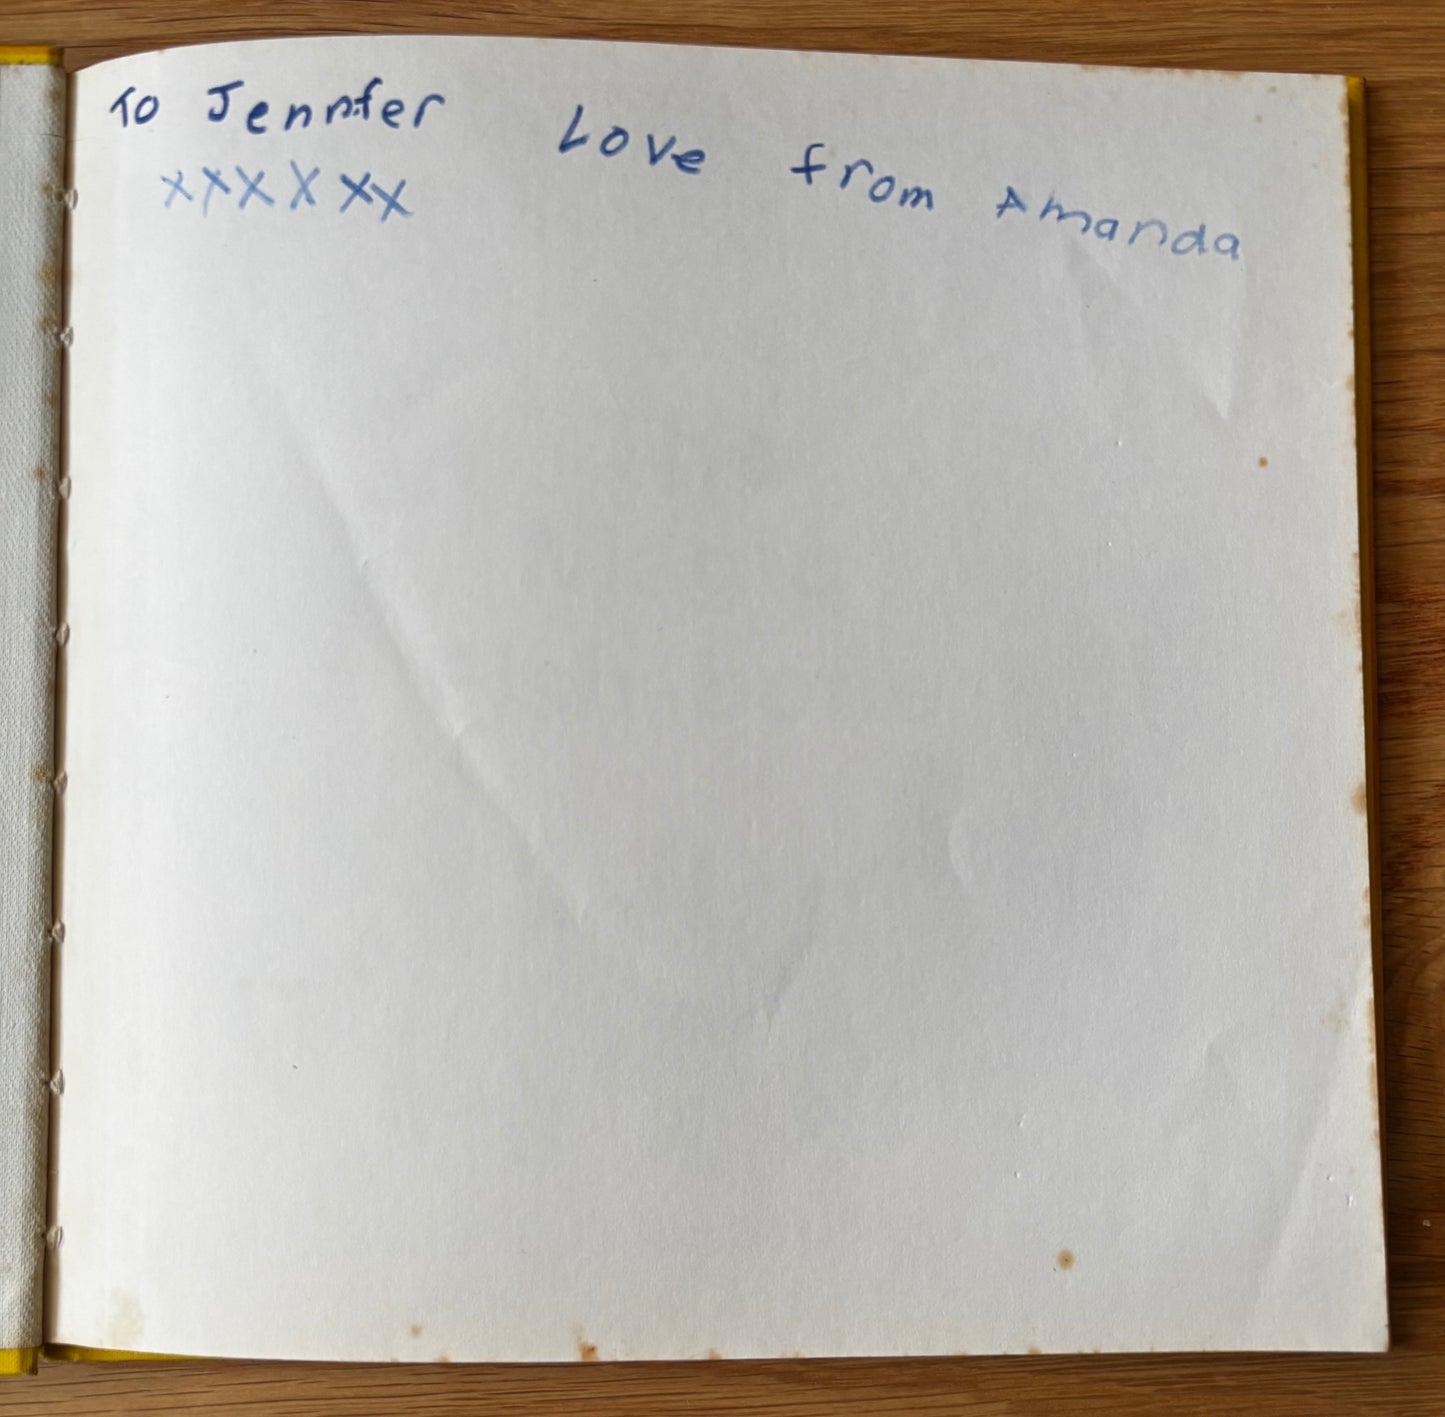 To Jennifer Love from Amanda
xxxxxx